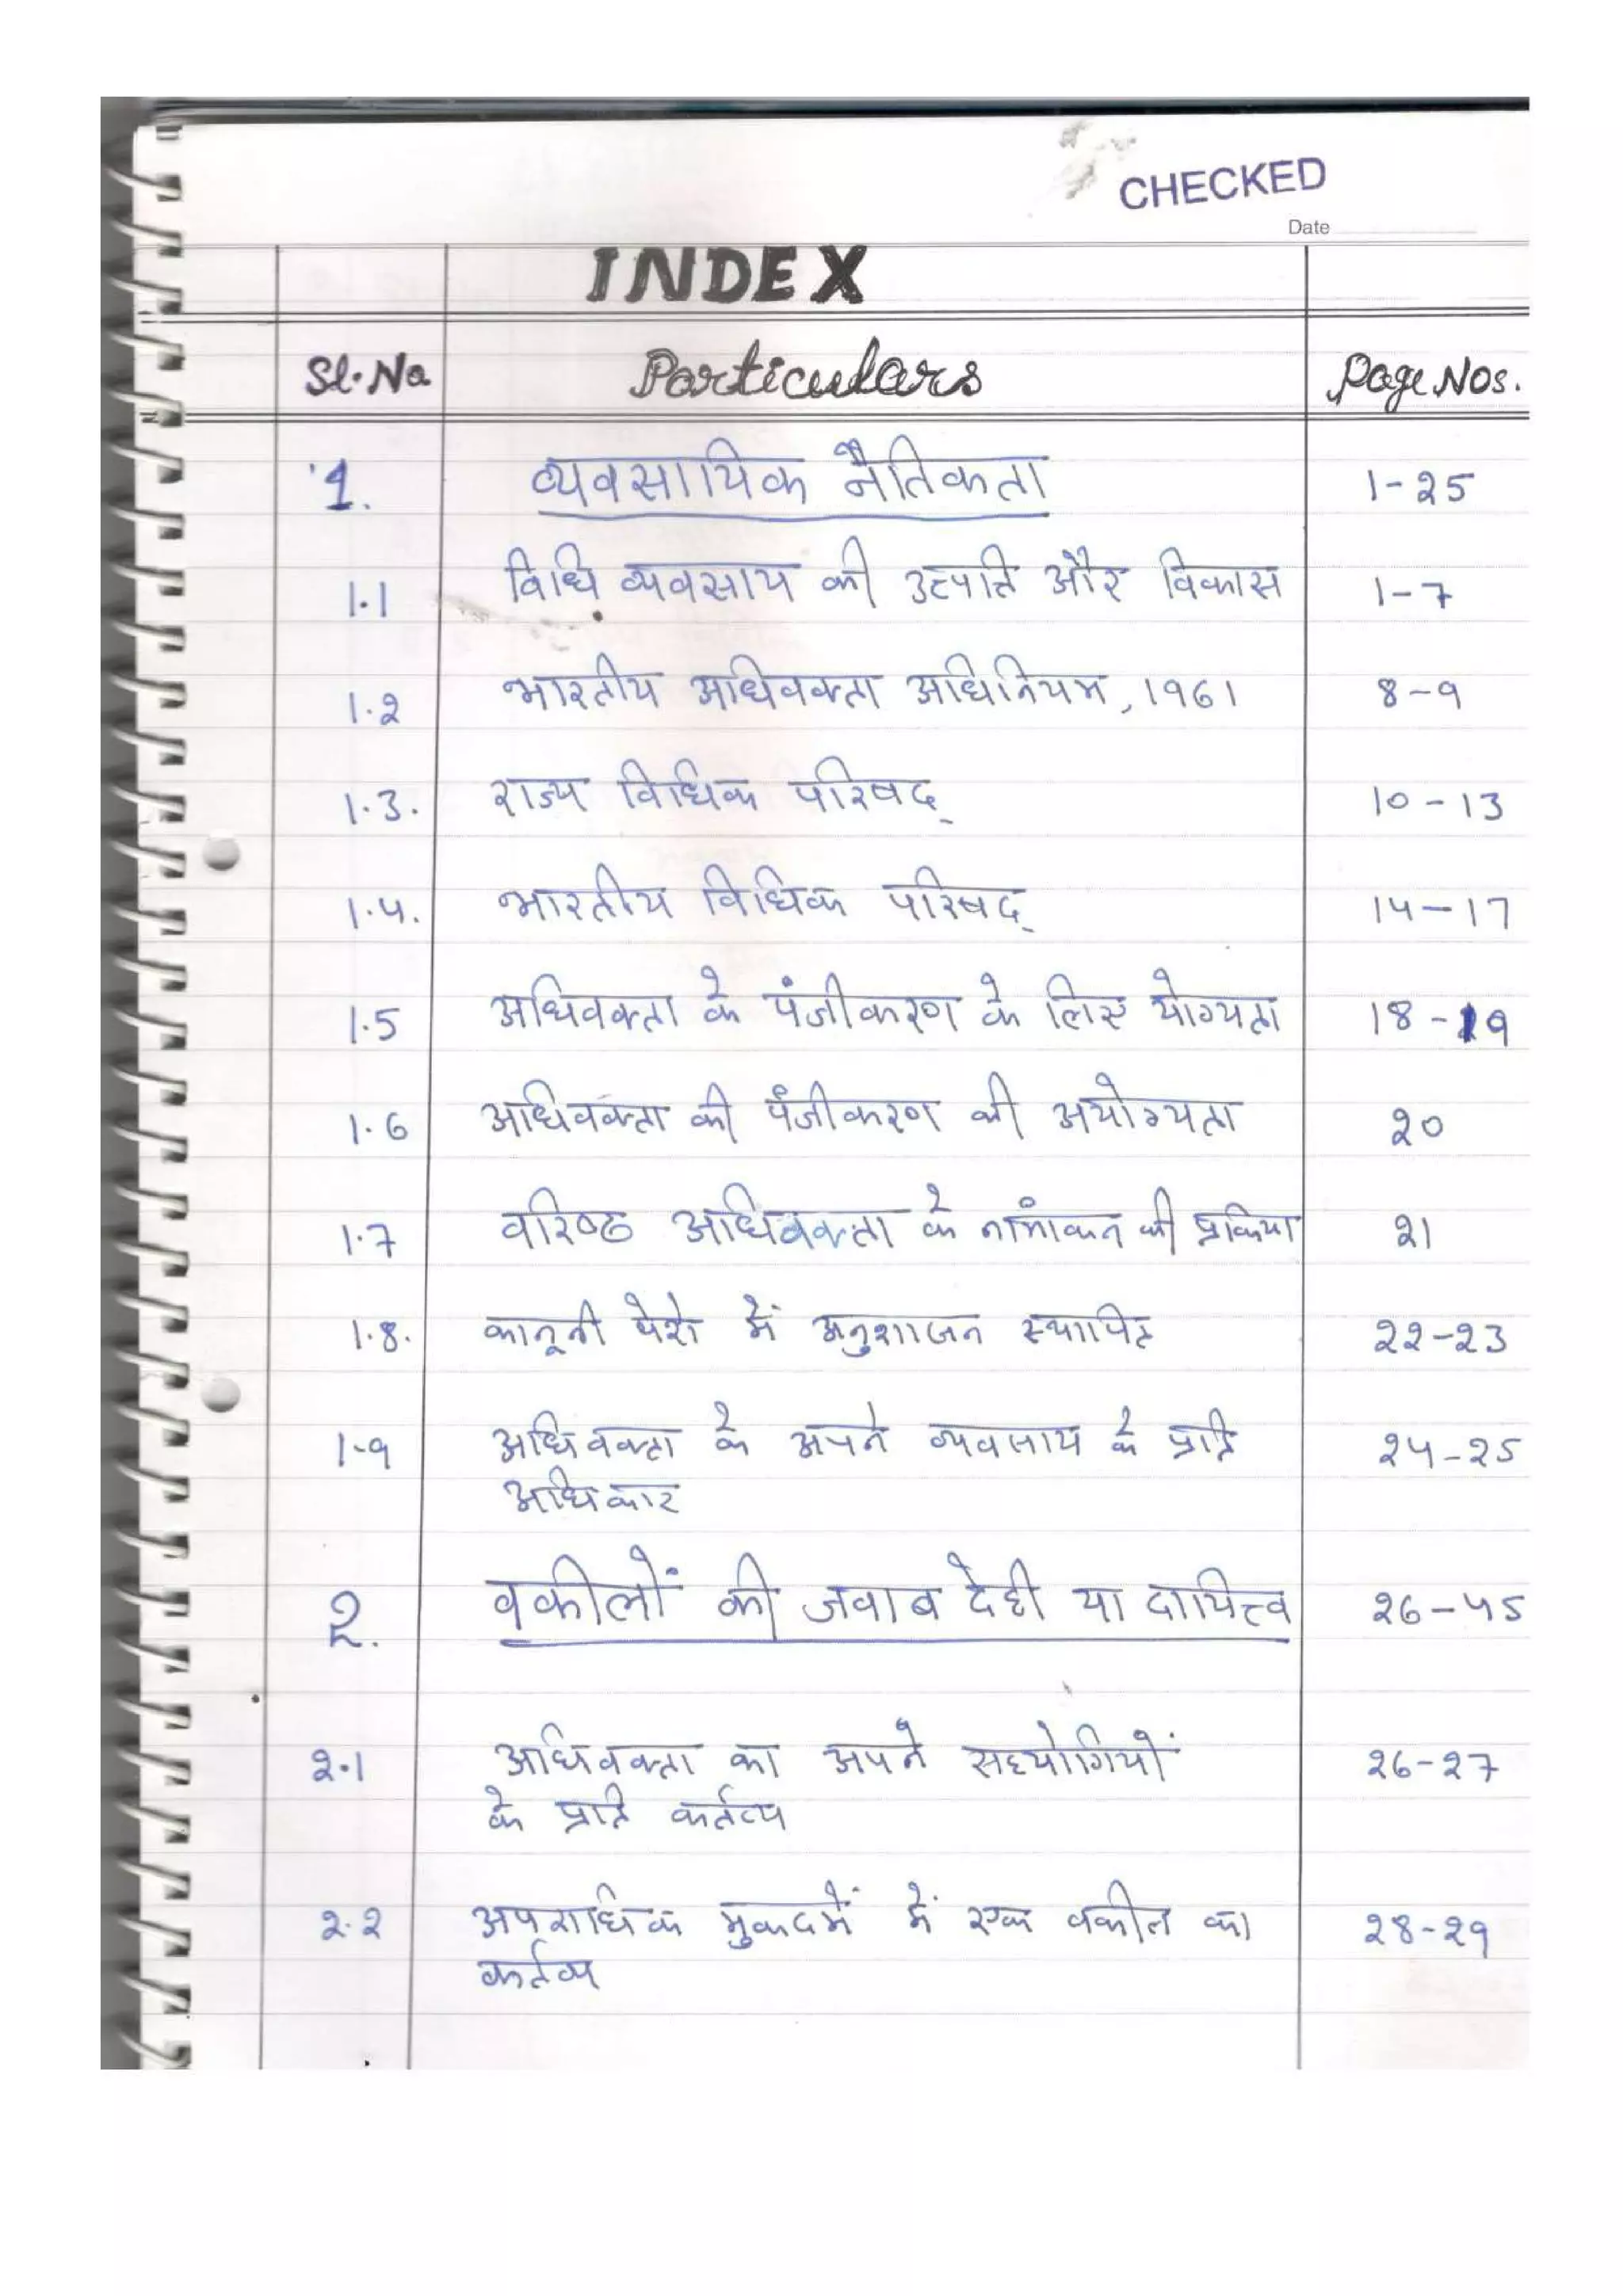 CHECKED
Date
INDEX
Sl.No Particulars Page Nos.
1. व्यवसायिक नैतिकता 1-25
1.1 विधि व्यवसाय की उत्पति और विकास 1-7
1.2 भारतीय अधिवक्ता अधिनियम, 1961 8-9
1.3. राज्य विधिक परिषद् 10-13
1.4. भारतीय विधिक परिषद् 14-17
1.5 अधिवक्ता के पंजीकरण के लिए योग्यता 18-19
1.6 अधिवक्ता की पंजीकरण की अयोग्यता 20
1.7 वरिष्ठ अधिवक्ता के नामांकन की प्रकिया 21
1.8. कानूनी पेशे में अनुशासन स्थापित 22-23
1.9 अधिवक्ता के अपने व्यवसाय के प्रति 24-25
अधिकार
2. वकीलों की जवाब देही या दायित्व 26-45
2.1 अधिवक्ता का अपने सहयोगियों 26-27
के प्रति कर्तव्य
2.2 अपराधिक मुकदमें में एक वकील का 28-29
कर्तव्य